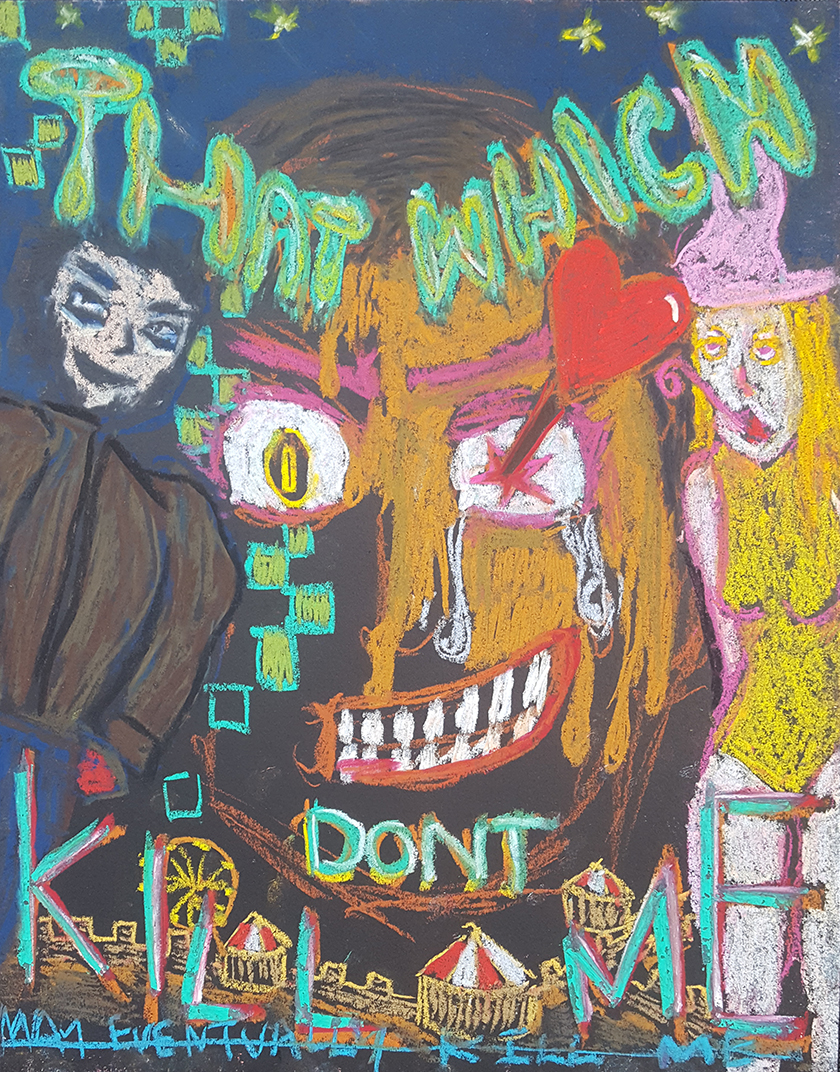 THAT WHICH
DONT
KILL ME
MAY EVENTUALLY KILL ME